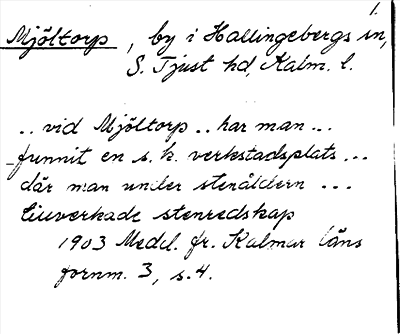 1.
Mjöltorp, by i Hallingebergs sn,
S. Tjust hd, Kalm. l.
.. vid Mjöltorp .. har man ...
funnit en s.k. verkstadsplats ...
där man under stenåldern ...
tillverkade stenredskap
1903 Medd. fr. Kalmar läns
fornm. 3, s. 4.